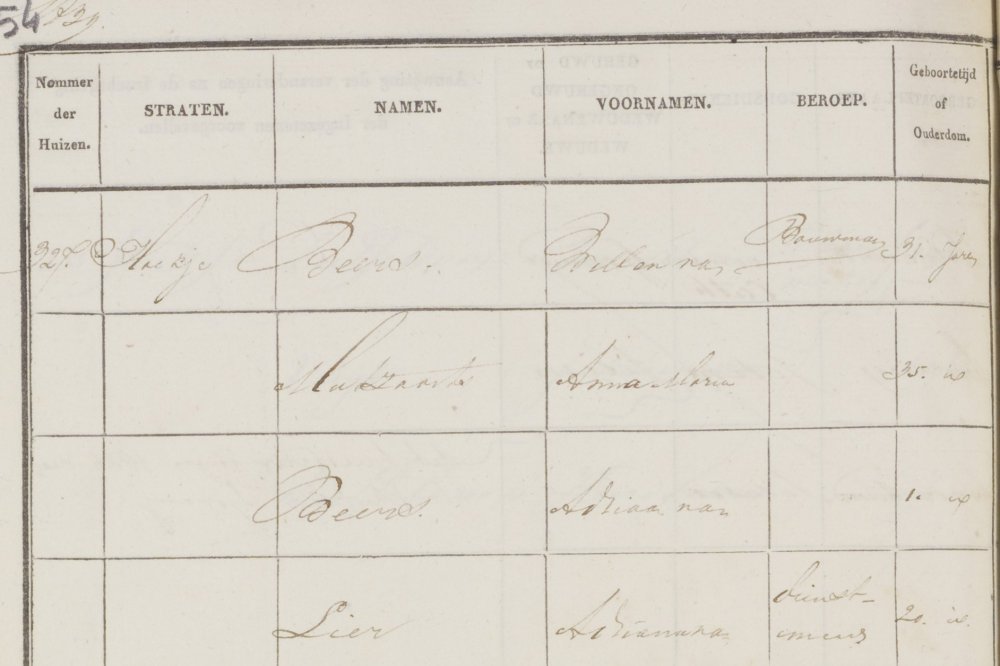 54
1839.
Nommer
der
Huizen.
STRATEN.
NAMEN.
VOORNAMEN.
BEROEP.
Geboortetijd
of
Ouderdom.
327. Hoekje Beers. Willem van Bouwman 31. Jaren
Anna Maria 35. id
Beers. Adriaan van 1. id
Lier Adriana van dienst-
meid 20. id.